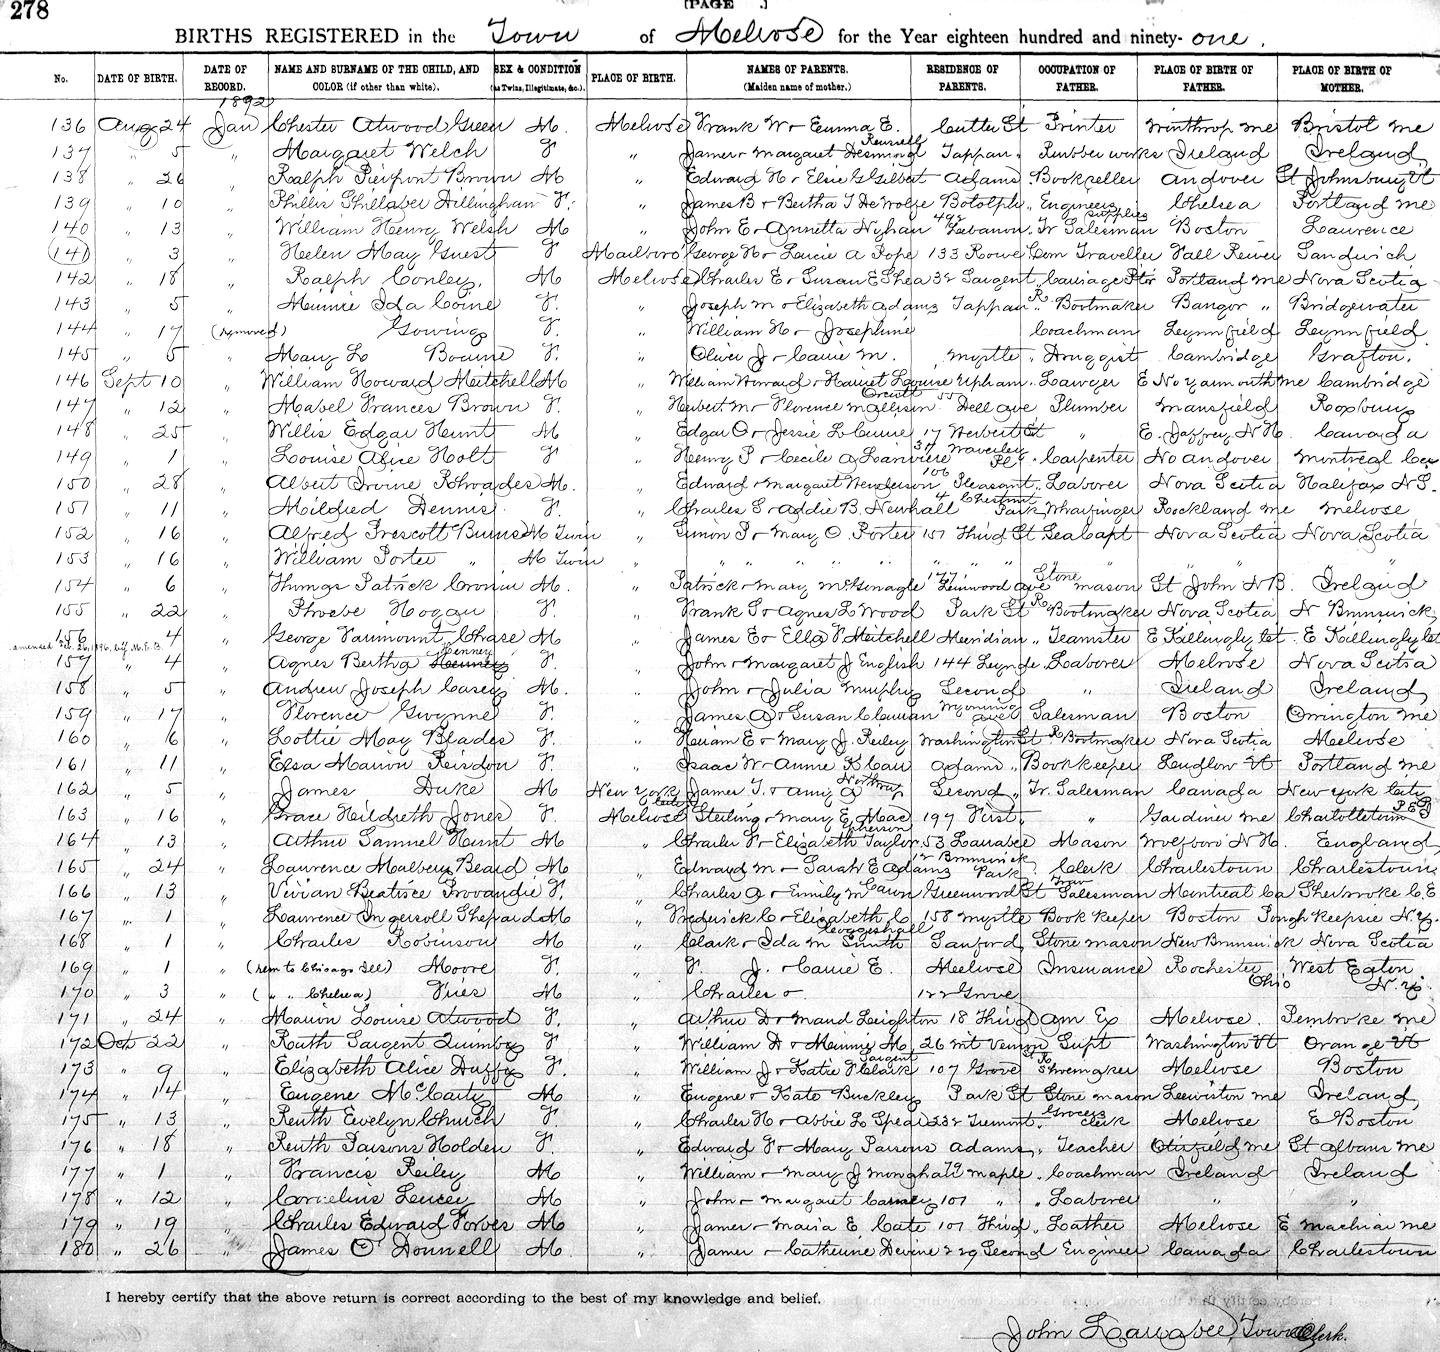 278
[PAGE .]
BIRTHS REGISTERED in the Town of Melrose for the Year eighteen hundred and ninety- one.
No. DATE OF BIRTH. DATE OF RECORD. NAME AND SURNAME OF THE CHILD, AND COLOR (if other than white). SEX & CONDITION (as Twins, Illegitimate, &c.) PLACE OF BIRTH. NAMES OF PARENTS. (Maiden name of mother.) RESIDENCE OF PARENTS. OCCUPATION OF FATHER. PLACE OF BIRTH OF FATHER. PLACE OF BIRTH OF MOTHER.
1892
136 Aug 24 Jan Chester Atwood Green M. Melrose Frank W & Emma E. Russell Cutter St Printer Winthrop Me Bristol Me
137 " 5 " Margaret Welch F. " James & Margaret Desmond Tappan " Rubber works Ireland Ireland
138 " 26 " Ralph Pierpont Brown M " Edward H & Elsie G Gilbert Adams " Bookseller Andover St Johnsbury Vt
139 " 10 " Phillis Shillaber Dillingham F. " James B & Bertha T De Wolfe Botolph " Engineers supplies Chelsea Portland Me
140 " 13 " William Henry Welsh M " John E & Annetta Nyhan 492 Lebanon " Tr Salesman Boston Laurence
141 " 3 " Helen May Guest F Marlboro George H & Lucie A Pope 133 Rowe Com Traveller Fall River Sandwich
142 " 18 " Ralph Conley. M Melrose Charles E & Susan E Shea 32 Sargent Carriage Ptr Portland Me Nova Scotia
143 " 5 " Minnie Ida Coine F. " Joseph M & Elizabeth Adams Tappan " R Bootmaker Bangor " Bridgewater
144 " 17 (removed) Gowing F. " William H & Josephine Coachman Lynnfield Lynnfield
145 " 5 " Mary L Bourne F. " Oliver J & Carrie M. Myrtle " Druggist Cambridge Grafton.
146 Sept 10 " William Howard Mitchell M " William Howard & Harriet Louise Upham " Lawyer E No Yarmouth Me Cambridge
147 " 12 " Mabel Frances Brown F. " Hubert M & Florence Mallison Orcutt 55 Dell Ave Plumber Mansfield Roxbury
148 " 25 " Willis Edgar Hunt M " Edgar O & Jessie L Currie 17 Herbert St " E. Jaffrey N H. Canada
149 " 1 " Louise Alice Holt F " Henry P & Cecile A Lariviere 37 Waverley Pl. Carpenter No Andover Montreal Ca
150 " 28 " Albert Irvine Rhoades M. " Edward & Margaret Henderson 106 Pleasant " Laborer Nova Scotia Halifax N S.
151 " 11 " Mildred Dennis F. " Charles S & Addie B. Newhall 4 Chestnut Park Wharfinger Rockland Me Melrose
152 " 16 " Alfred Prescott Burns M Twin " Simon P & Mary O. Porter 157 Third St Sea Capt Nova Scotia Nova Scotia
153 " 16 " William Porter " M Twin " " " " " " " "
154 " 6 " Thomas Patrick Cronin M. " Patrick & Mary McGonagle 177 Linwood Ave Stone Mason St John N B. Ireland
155 " 22 " Phoebe Hogan F. " Frank S & Agnes L Wood Park St R Bootmaker Nova Scotia N Brunswick
156 " 4 " George Farimount Chase M " James E & Ella F Mitchell Meridian " Teamster E Killingly Ct E Killingly Ct
amended Feb. 26, 1896, by M.E.B.
157 " 4 " Agnes Bertha Kenney F. " John & Margaret J English 144 Lynde Laborer Melrose Nova Scotia
158 " 5 " Andrew Joseph Casey M. " John & Julia Murphy Second " Ireland Ireland
159 " 17 " Florence Gwynne F. " James A & Susan C Curran Wyoming Ave Salesman Boston Orrington Me
160 " 6 " Lottie May Blades F. " Hiram E & Mary J. Reiley Washington St R Bootmaker Nova Scotia Melrose
161 " 11 " Elsa Marion Reisdon F. " Isaac W & Annie K Carr Adams " Bookkeeper Ludlow Vt Portland Me
162 " 5 " James Duke M New York City James T. & Amy A Northrup Second " Tr. Salesman Canada New York City
163 " 16 " Grace Hildreth Jones F. Melrose Sterling & Mary E Mac pherson 197 First " " Gardiner Me Charlottetown P E I
164 " 13 " Arthur Samuel Hunt M " Charles F & Elizabeth Taylor 53 Larrabee Mason Wolfboro N H. England
165 " 24 " Laurence Malbery Beard M " Edward M & Sarah E Adams 12 Brunswick Park Clerk Charlestown Charlestown
166 " 13 " Vivian Beatrice Provandie F. " Charles A & Emily M Caron Greenwood St Trav Salesman Montreal Ca Sherbroke C E
167 " 1 " Laurence Ingersoll Shepard M " Frederick C & Elizabeth C Coggeshall 158 Myrtle Book keeper Boston Poughkeepsie N.Y.
168 " 1 " Charles Robinson M " Clark & Ida M Smith Sanford Stone mason New Brunswick Nova Scotia
169 " 1 (rem to Chicago Ill) Moore F. " F. J. & Carrie E. Melrose Insurance Rochester Ohio West Egton N.Y.
170 " 3 " ( " " Chelsea) Fries M " Charles & 122 Grove
171 " 24 " Marion Louise Atwood F. " Arthur D & Maud Leighton 18 Third Am Ex Melrose Pembroke Me
172 Oct 22 " Ruth Sargent Quimby F. " William D & Minnie M. Sargent 26 Mt Vernon St Supt Washington Vt Orange Vt
173 " 9 " Elizabeth Alice Duffy F. " William J & Katie F Clark 107 Grove R Shoemaker Melrose Boston
174 " 14 " Eugene McCarty M " Eugene & Kate Buckley Park St Stone mason Lewiston Me Ireland
175 " 13 " Ruth Evelyn Church F. " Charles H & Abbie L Spear 232 Tremont Grocers clerk Melrose E Boston
176 " 18 " Ruth Parsons Holden F. " Edward F & Mary Parsons Adams " Teacher Otisfield Me St Albans Me
177 " 1 " Francis Reiley M " William & Mary J Monghall 79 Maple " Coachman Ireland Ireland
178 " 12 " Cornelius Lucey M " John & Margaret Carney 107 " " Laborer " "
179 " 19 " Charles Edward Forbes M " James & Maria E Cate 107 Third " Leather Melrose E Machias Me
180 " 26 " James O'Donnell M. " James & Catherine Devine 229 Second Engineer Canada Charlestown
I hereby certify that the above return is correct according to the best of my knowledge and belief.
John Larrabee, Town Clerk.